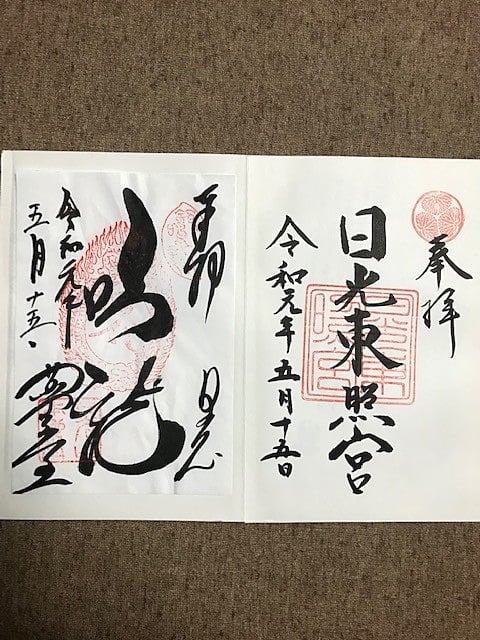 奉拝
日光東照宮
令和元年五月十五日
奉拝
日光
鳴龍
令和元年
五月十五日